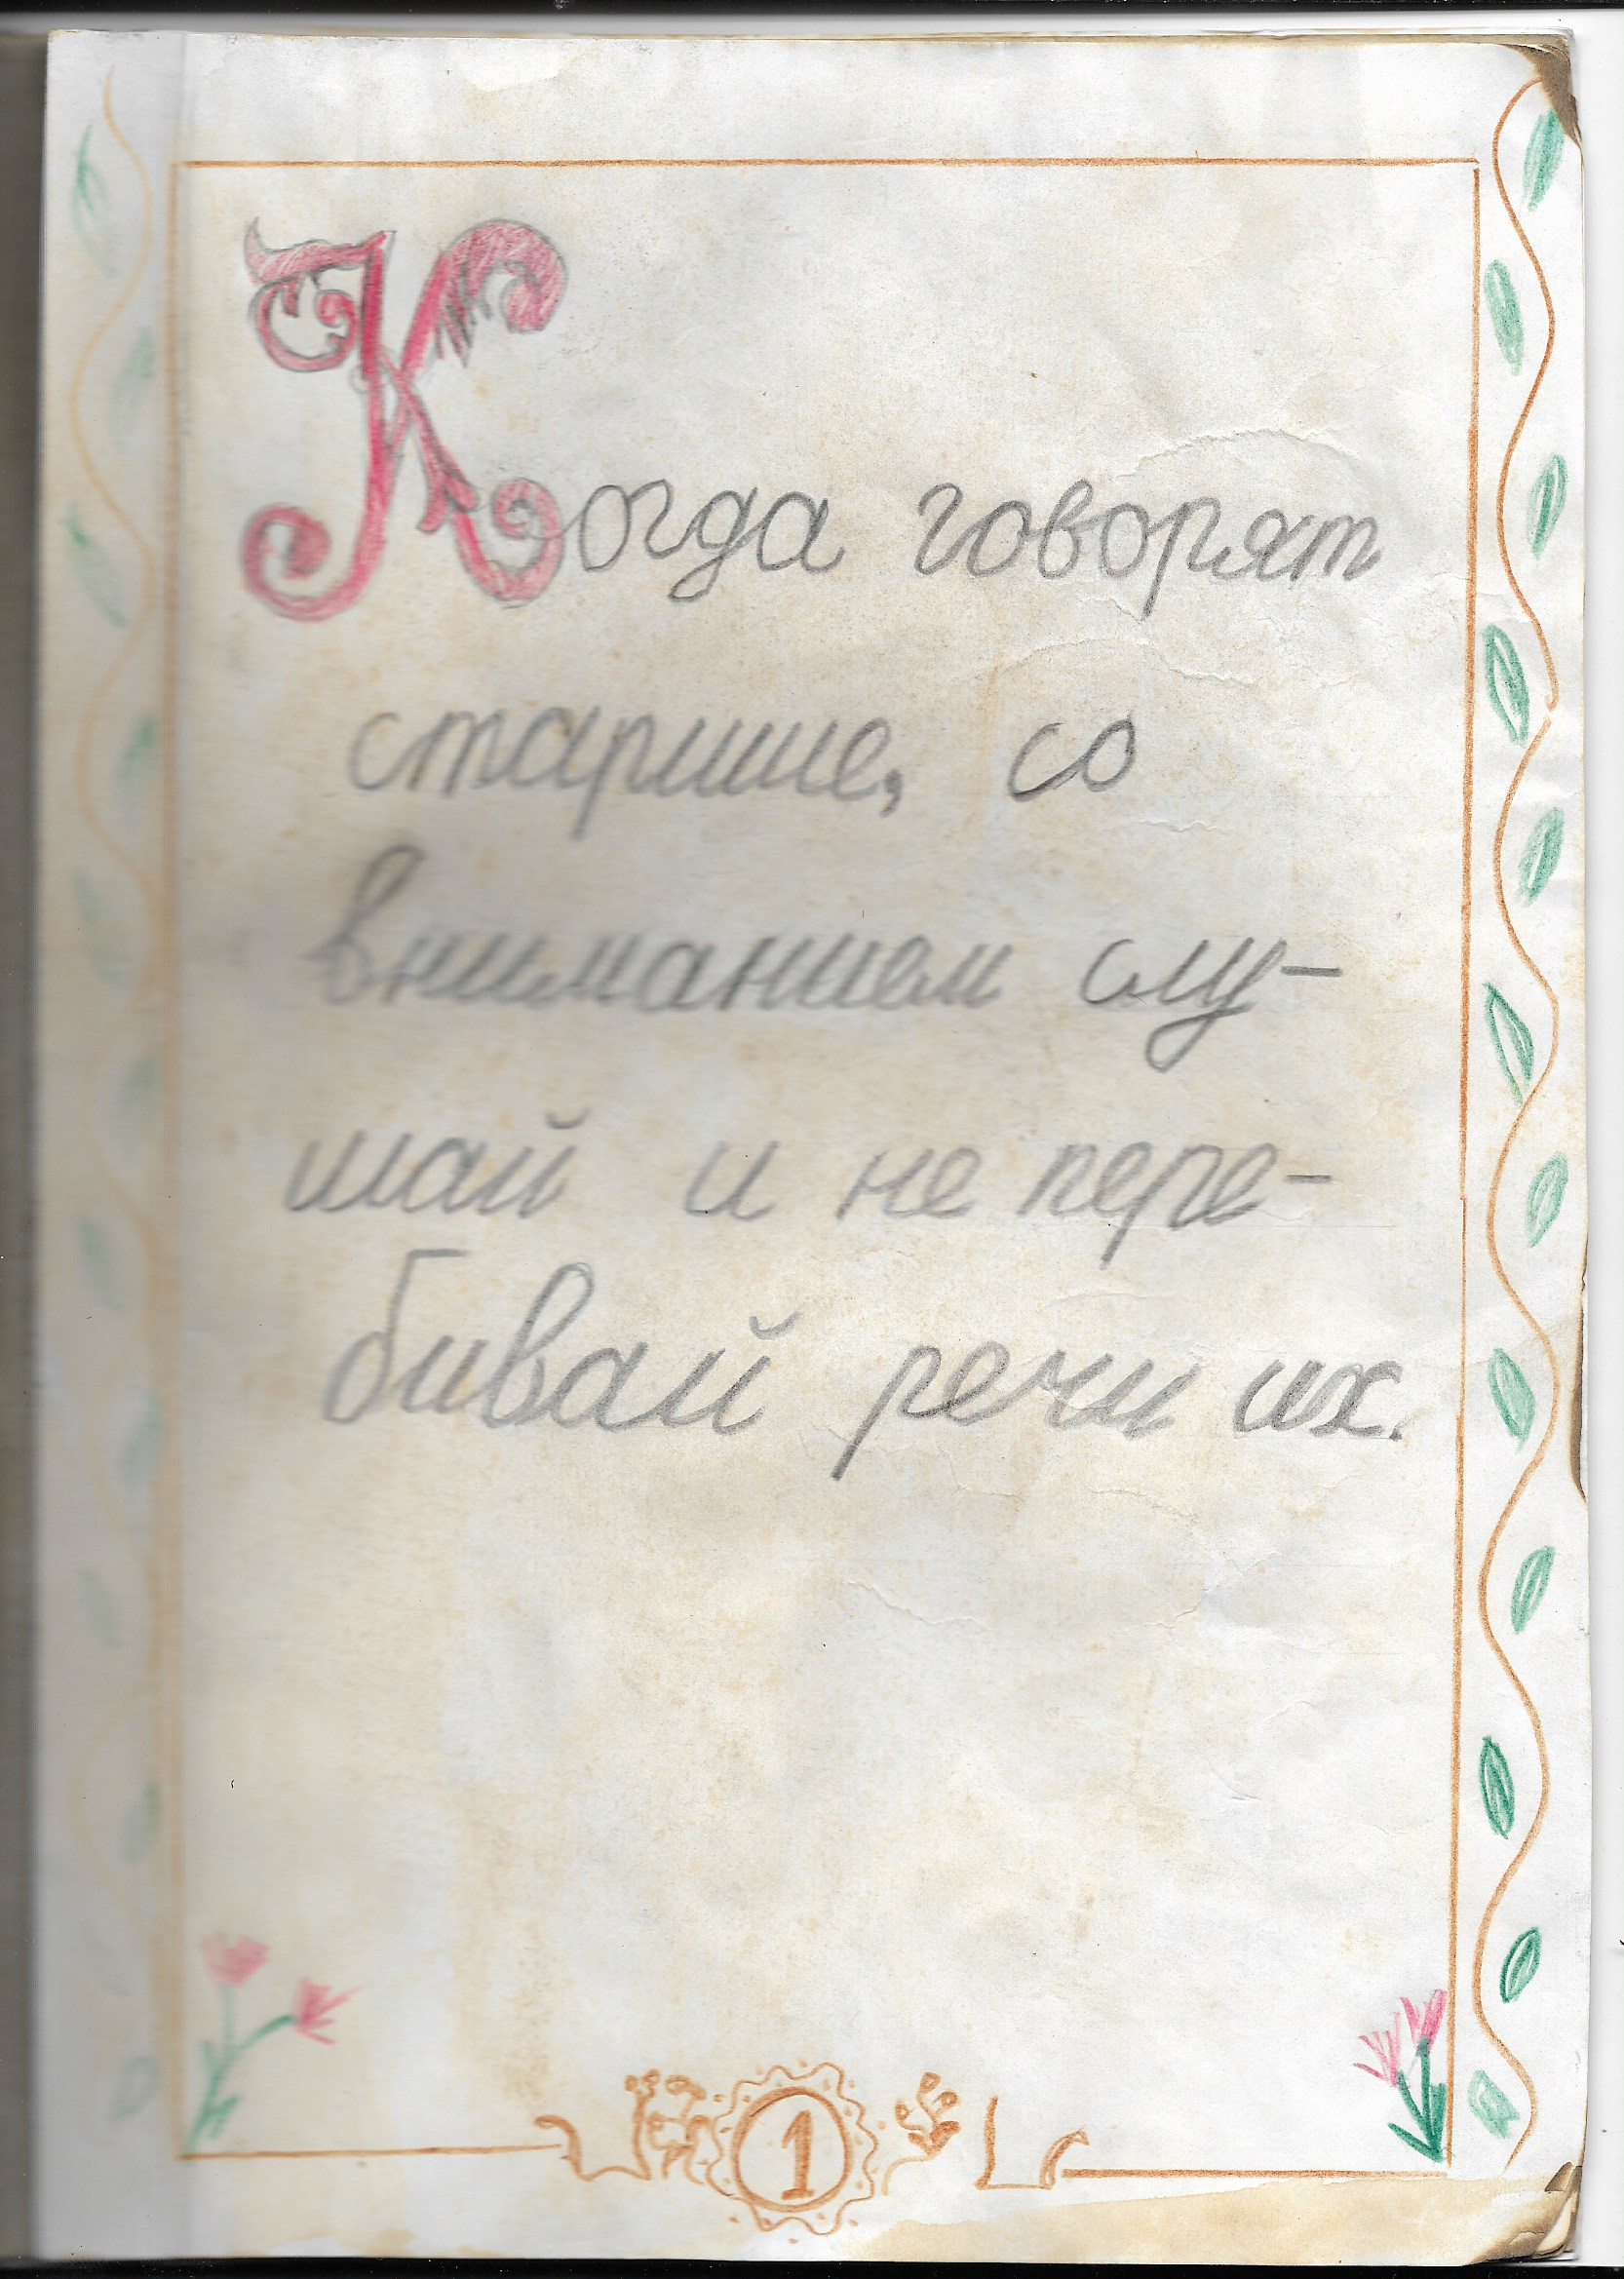 Когда говорят
старшие, со
вниманием слу-
шай и не пере-
бивай речи их.
1